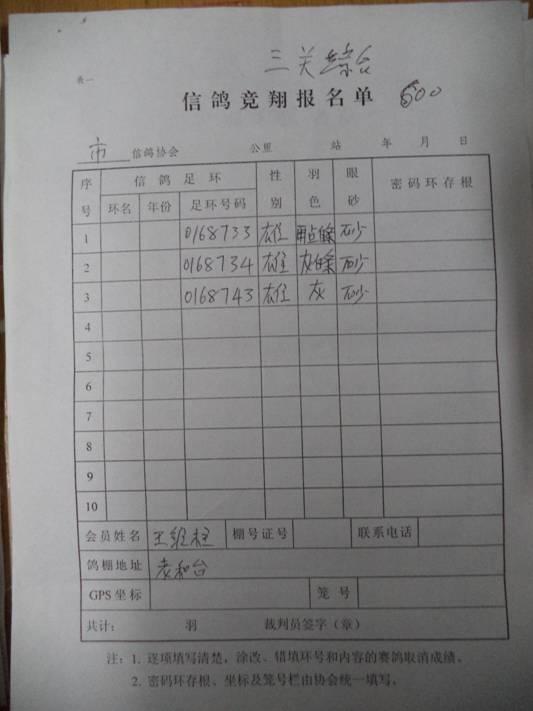 三关综合
表一
信鸽竞翔报名单 600
市 信鸽协会 公里 站 年 月 日
序号 信鸽足环 性别 羽色 眼砂 密码环存根
环名 年份 足环号码
1 0168733 雄 条 砂
2 0168734 雄 灰条 砂
3 0168743 雄 灰 砂
4
5
6
7
8
9
10
会员姓名 王维柱 棚号证号 联系电话
鸽棚地址 老和台
GPS坐标 笼号
共计: 羽 裁判员签字(章)
注:1. 逐项填写清楚,涂改、错填环号和内容的赛鸽取消成绩。
2. 密码环存根、坐标及笼号栏由协会统一填写。